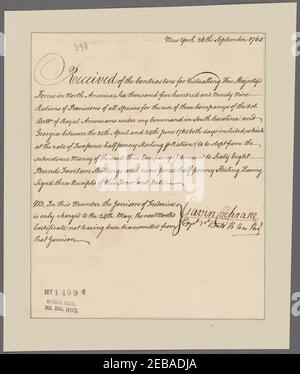 New York 26th September 1765
398
Received of the Contractors for Victualling His Majesty's
Forces in North America, Six thousand five hundred and Ninety Nine
Rations of Provisions of all Species for the use of three Companys of the 1st
Batt. of Royal Americans under my command in South Carolina and
Georgia between the 25th April and 24th June 1765 both days included, which
at the rate of Twopence half penny Sterling p Ration (to be stopt from the
Subsistance Money of the said three Companys) Amount to Sixty Eight
Pound Fourteen Shillings and nine pence half penny Sterling Having
Signd three Receipts of this Tenor and Date.
NB. In this Number the Garrison of Frederica
is only charged to the 24th May, the next Months
Certificate not having been transmitted from
that Garrison.
Gavin Cochrane
MY 1499
MYERS COLL.
MS. DIV. NYPL
alamy
Image ID: 2EBADJA
www.alamy.com